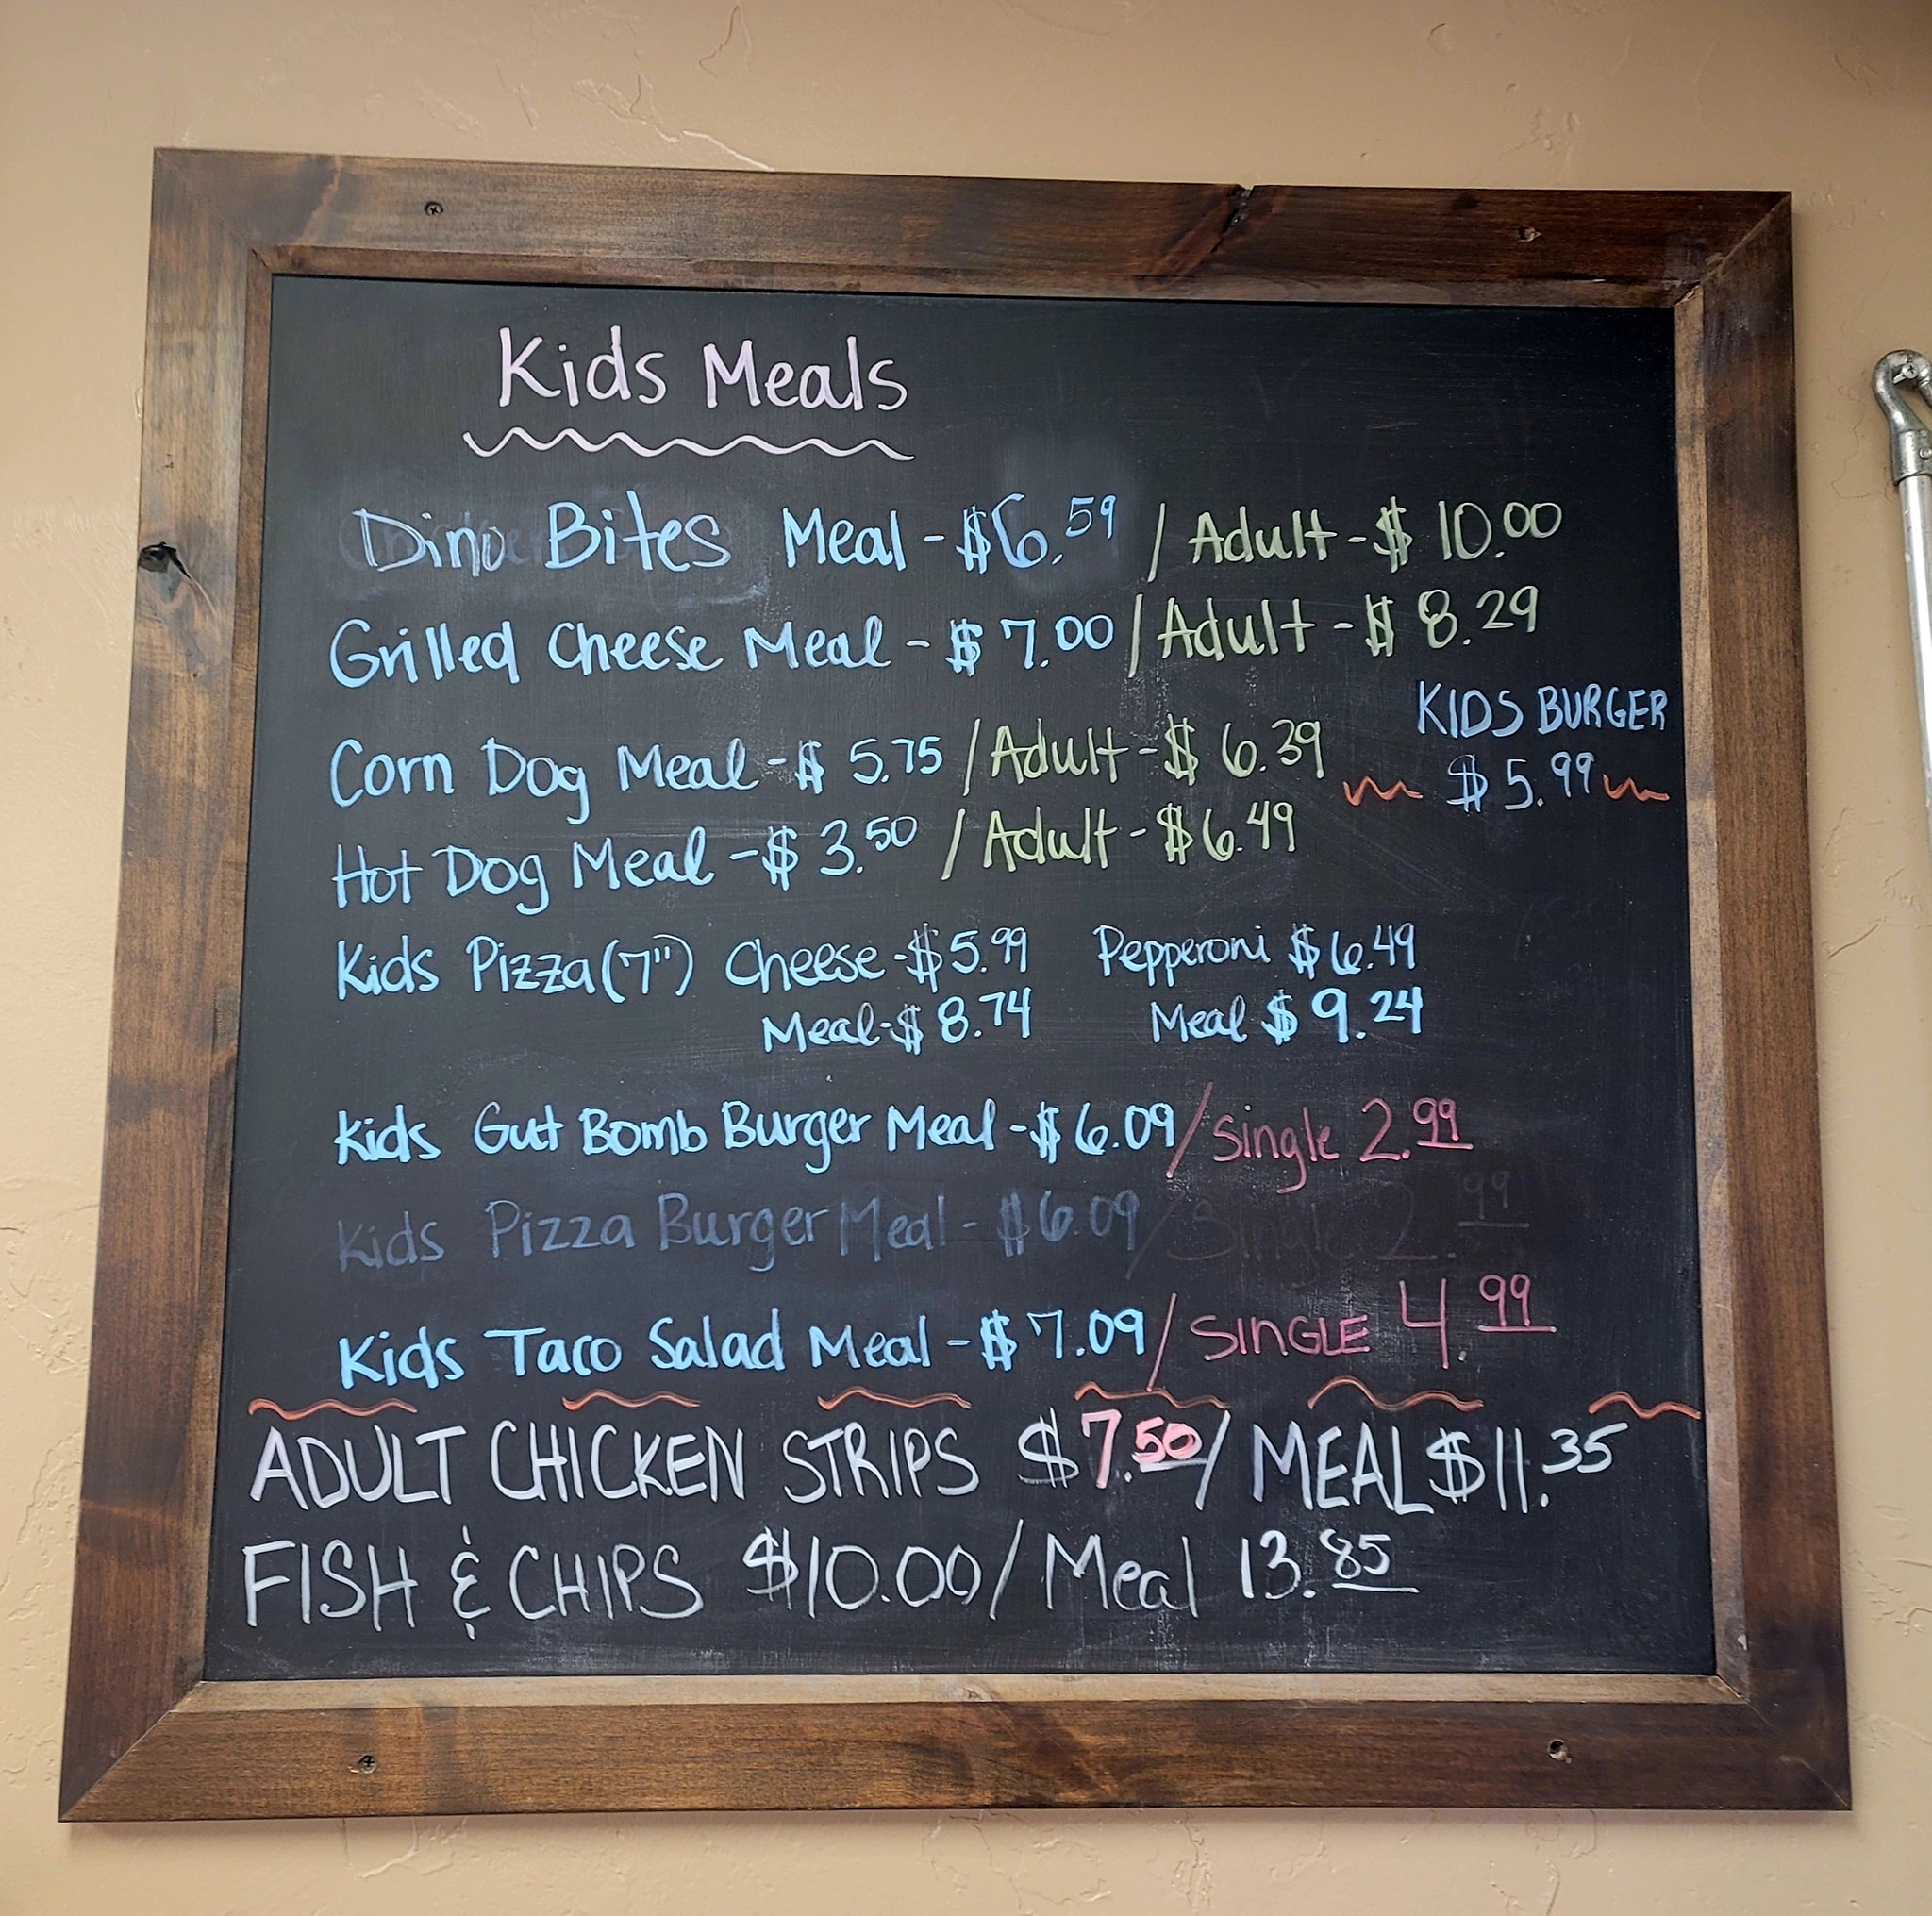 Kids Meals
Dino Bites Meal - $6.59 / Adult - $10.00
Grilled Cheese Meal - $7.00 / Adult - $8.29
KIDS BURGER
$5.99
Corn Dog Meal - $5.75 / Adult - $6.39
Hot Dog Meal - $3.50 / Adult - $6.49
Kids Pizza (7") Cheese - $5.99 Pepperoni $6.49
Meal - $8.74 Meal $9.24
Kids Gut Bomb Burger Meal - $6.09 / Single 2.99
Kids Pizza Burger Meal - $6.09 / Single 2.99
Kids Taco Salad Meal - $7.09 / SINGLE 4.99
ADULT CHICKEN STRIPS $7.50 / MEAL $11.35
FISH & CHIPS $10.00 / Meal 13.85